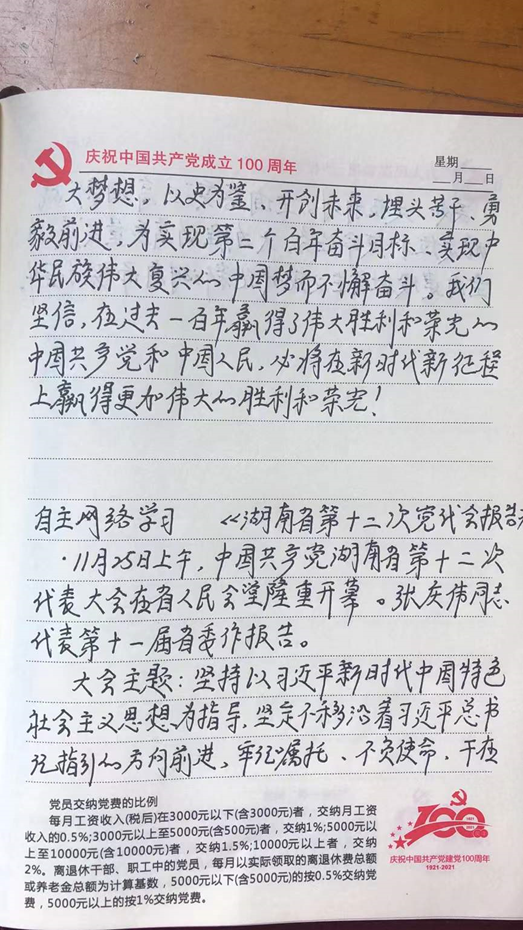 庆祝中国共产党成立100周年
星期
月 日
大梦想，以史为鉴、开创未来，埋头苦干、勇
毅前进，为实现第二个百年奋斗目标、实现中
华民族伟大复兴的中国梦而不懈奋斗。我们
坚信，在过去一百年赢得了伟大胜利和荣光的
中国共产党和中国人民，必将在新时代新征程
上赢得更加伟大的胜利和荣光！
自主网络学习 《湖南省第十二次党代会报告
·11月25日上午，中国共产党湖南省第十二次
代表大会在省人民会堂隆重开幕。张庆伟同志
代表第十一届省委作报告。
大会主题：坚持以习近平新时代中国特色
社会主义思想为指导，坚定不移沿着习近平总书
记指引的方向前进，牢记嘱托、不负使命，干在
党员交纳党费的比例
每月工资收入(税后)在3000元以下(含3000元)者，交纳月工资
收入的0.5%;3000元以上至5000元(含500元)者，交纳1%;5000元以
上至10000元(含10000元)者，交纳1.5%;10000元以上者，交纳
2%。离退休干部、职工中的党员，每月以实际领取的离退休费总额
或养老金总额为计算基数，5000元以下(含5000元)的按0.5%交纳党
费，5000元以上的按1%交纳党费。
100
庆祝中国共产党建党100周年
1921-2021